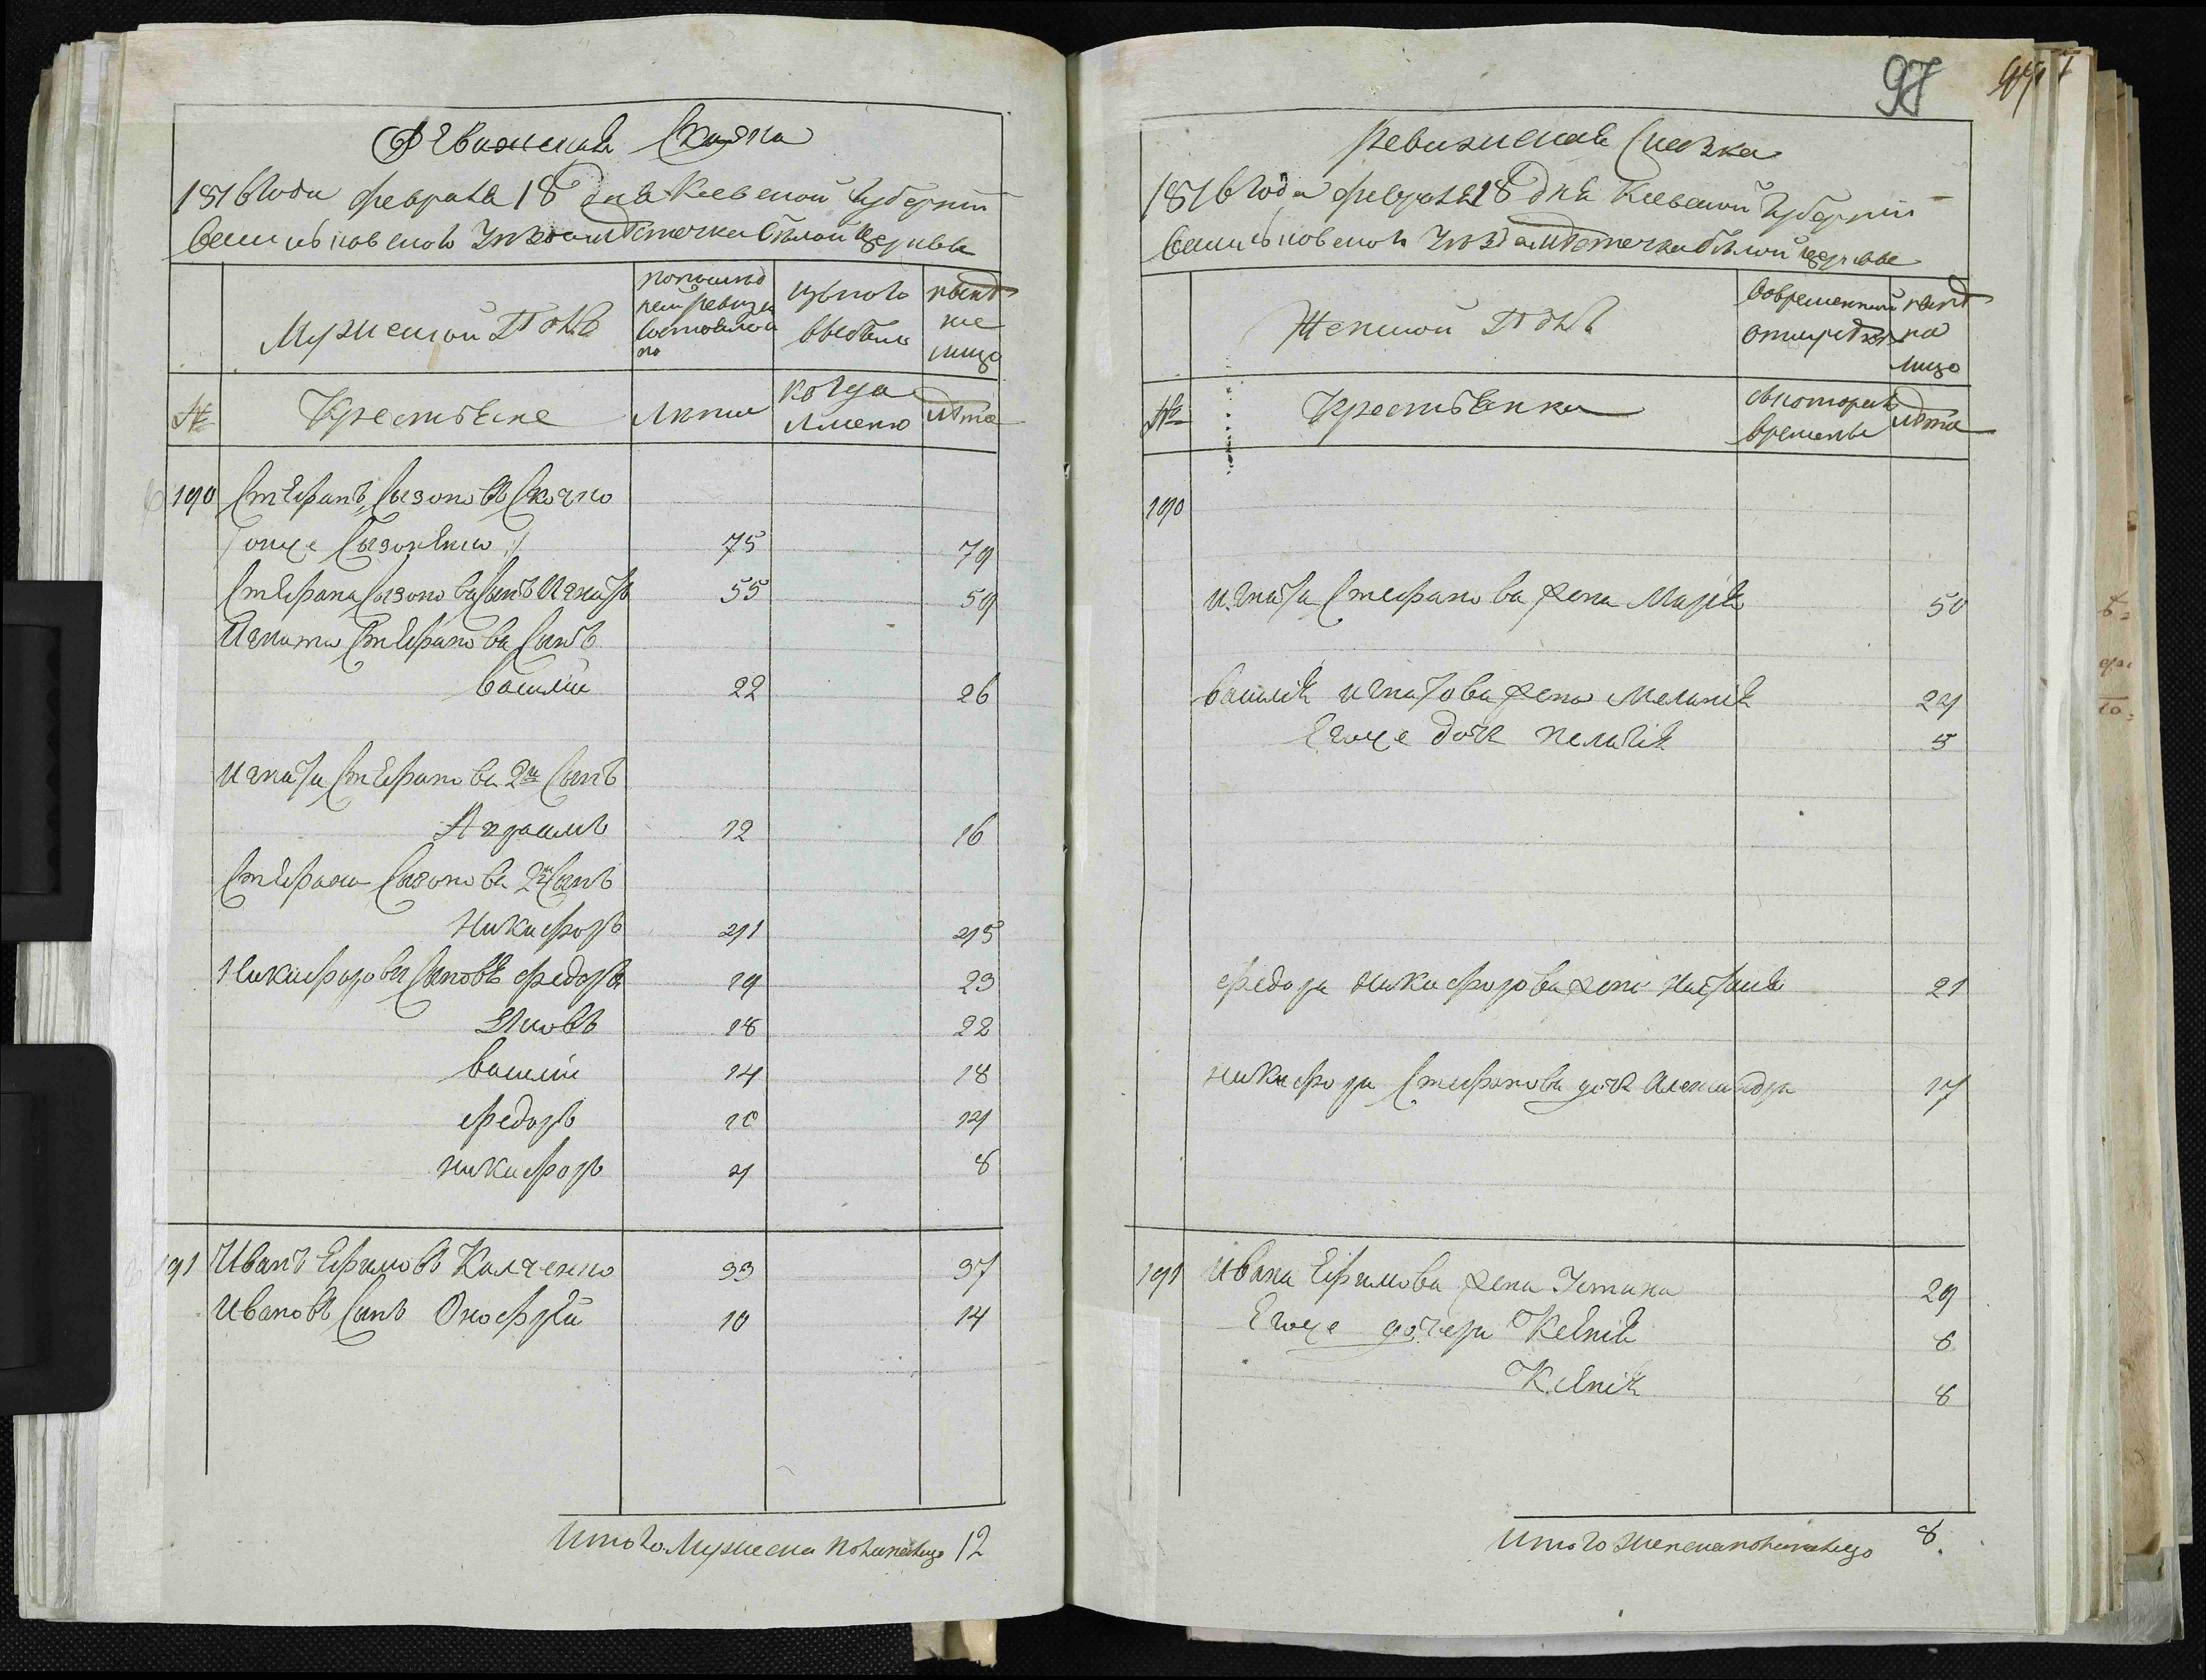 Ревижская Скаска
1816 Года февраля 18 дня Киевской Губернии
Василковского Уезда мѣстечка Бѣлой Церкви
Мужеской Полъ
по последней ревизии состояло
изъ того выбыло
ныне на лицо
№
Крестьяне
Лета
когда именно
лѣта
190 Стефанъ Сазоновъ
онже Сазоненко
75 79
Стефана Сазонова сынъ Игнатъ 55 59
Игната Стефанова Сынъ
Василий 22 26
Игната Стефанова 2й Сынъ
12 16
Стефана Сазонова 2й Сынъ
Никифоръ 41 45
Никифоровы Сыновя федоръ 19 23
Яковъ 18 22
Василий 14 18
федоръ 10 14
никифоръ 4 8
191 Иванъ Ефимовъ Калченко 33 37
Ивановъ Сынъ Онофрий 10 14
Итого Мужеска пола налицо 12
97
Ревижская Скаска
1816 Года февраля 18 дня Киевской Губернии
Василковского Уезда мѣстечка бѣлой церкве
Женской Полъ
во временной отлучке
ныне на лицо
№
Крестьянки
съ которого времени
лѣта
190
игната Стефанова жена Мария 50
василия игнатова жена Мелания 24
Егоже дочь пелагия 5
федора никифорова жена 21
никифора Стефанова дочь Александра 17
191 Ивана Ефимова жена Устина 29
Егоже дочери Ксения 8
Ксения 8
Итого женска пола налицо 8.